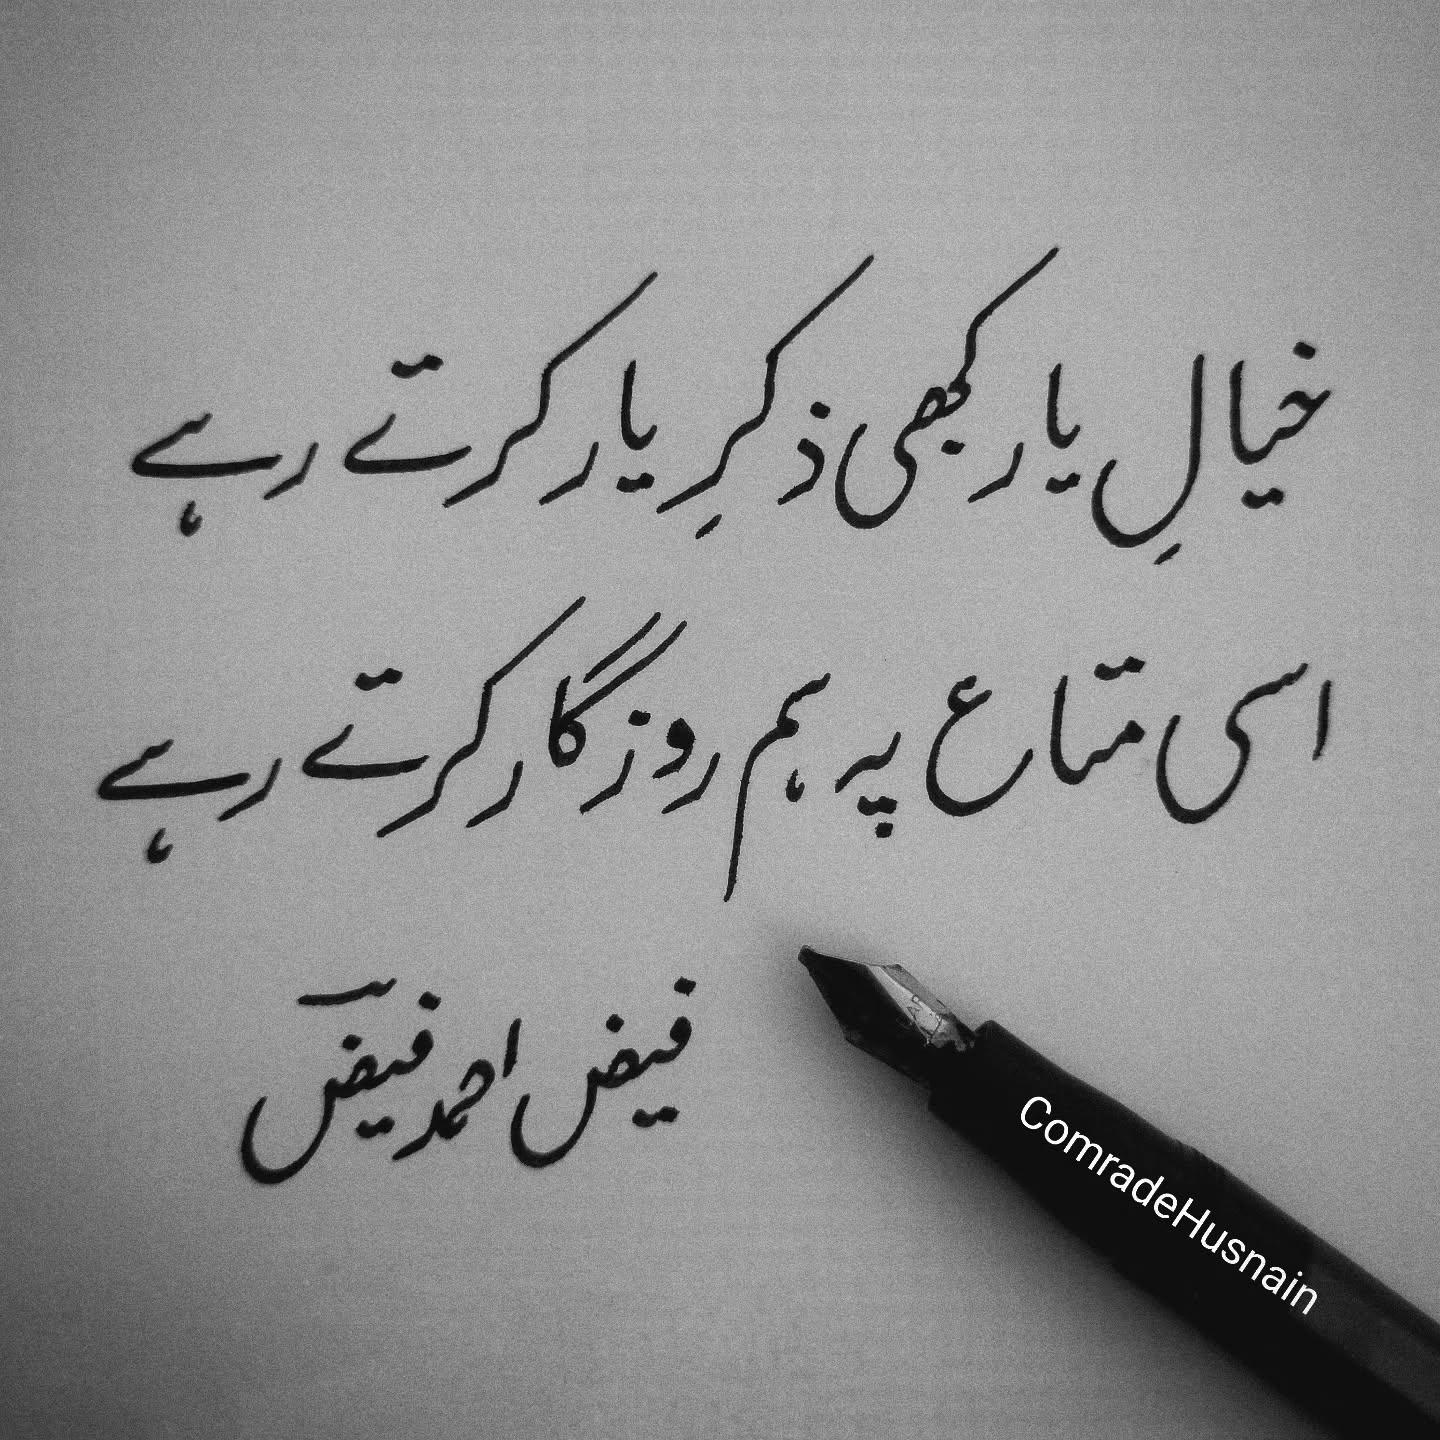 خیالِ یار کبھی ذکرِ یار کرتے رہے
اسی متاع پہ ہم روزگار کرتے رہے
فیض احمد فیضؔ
ComradeHusnain